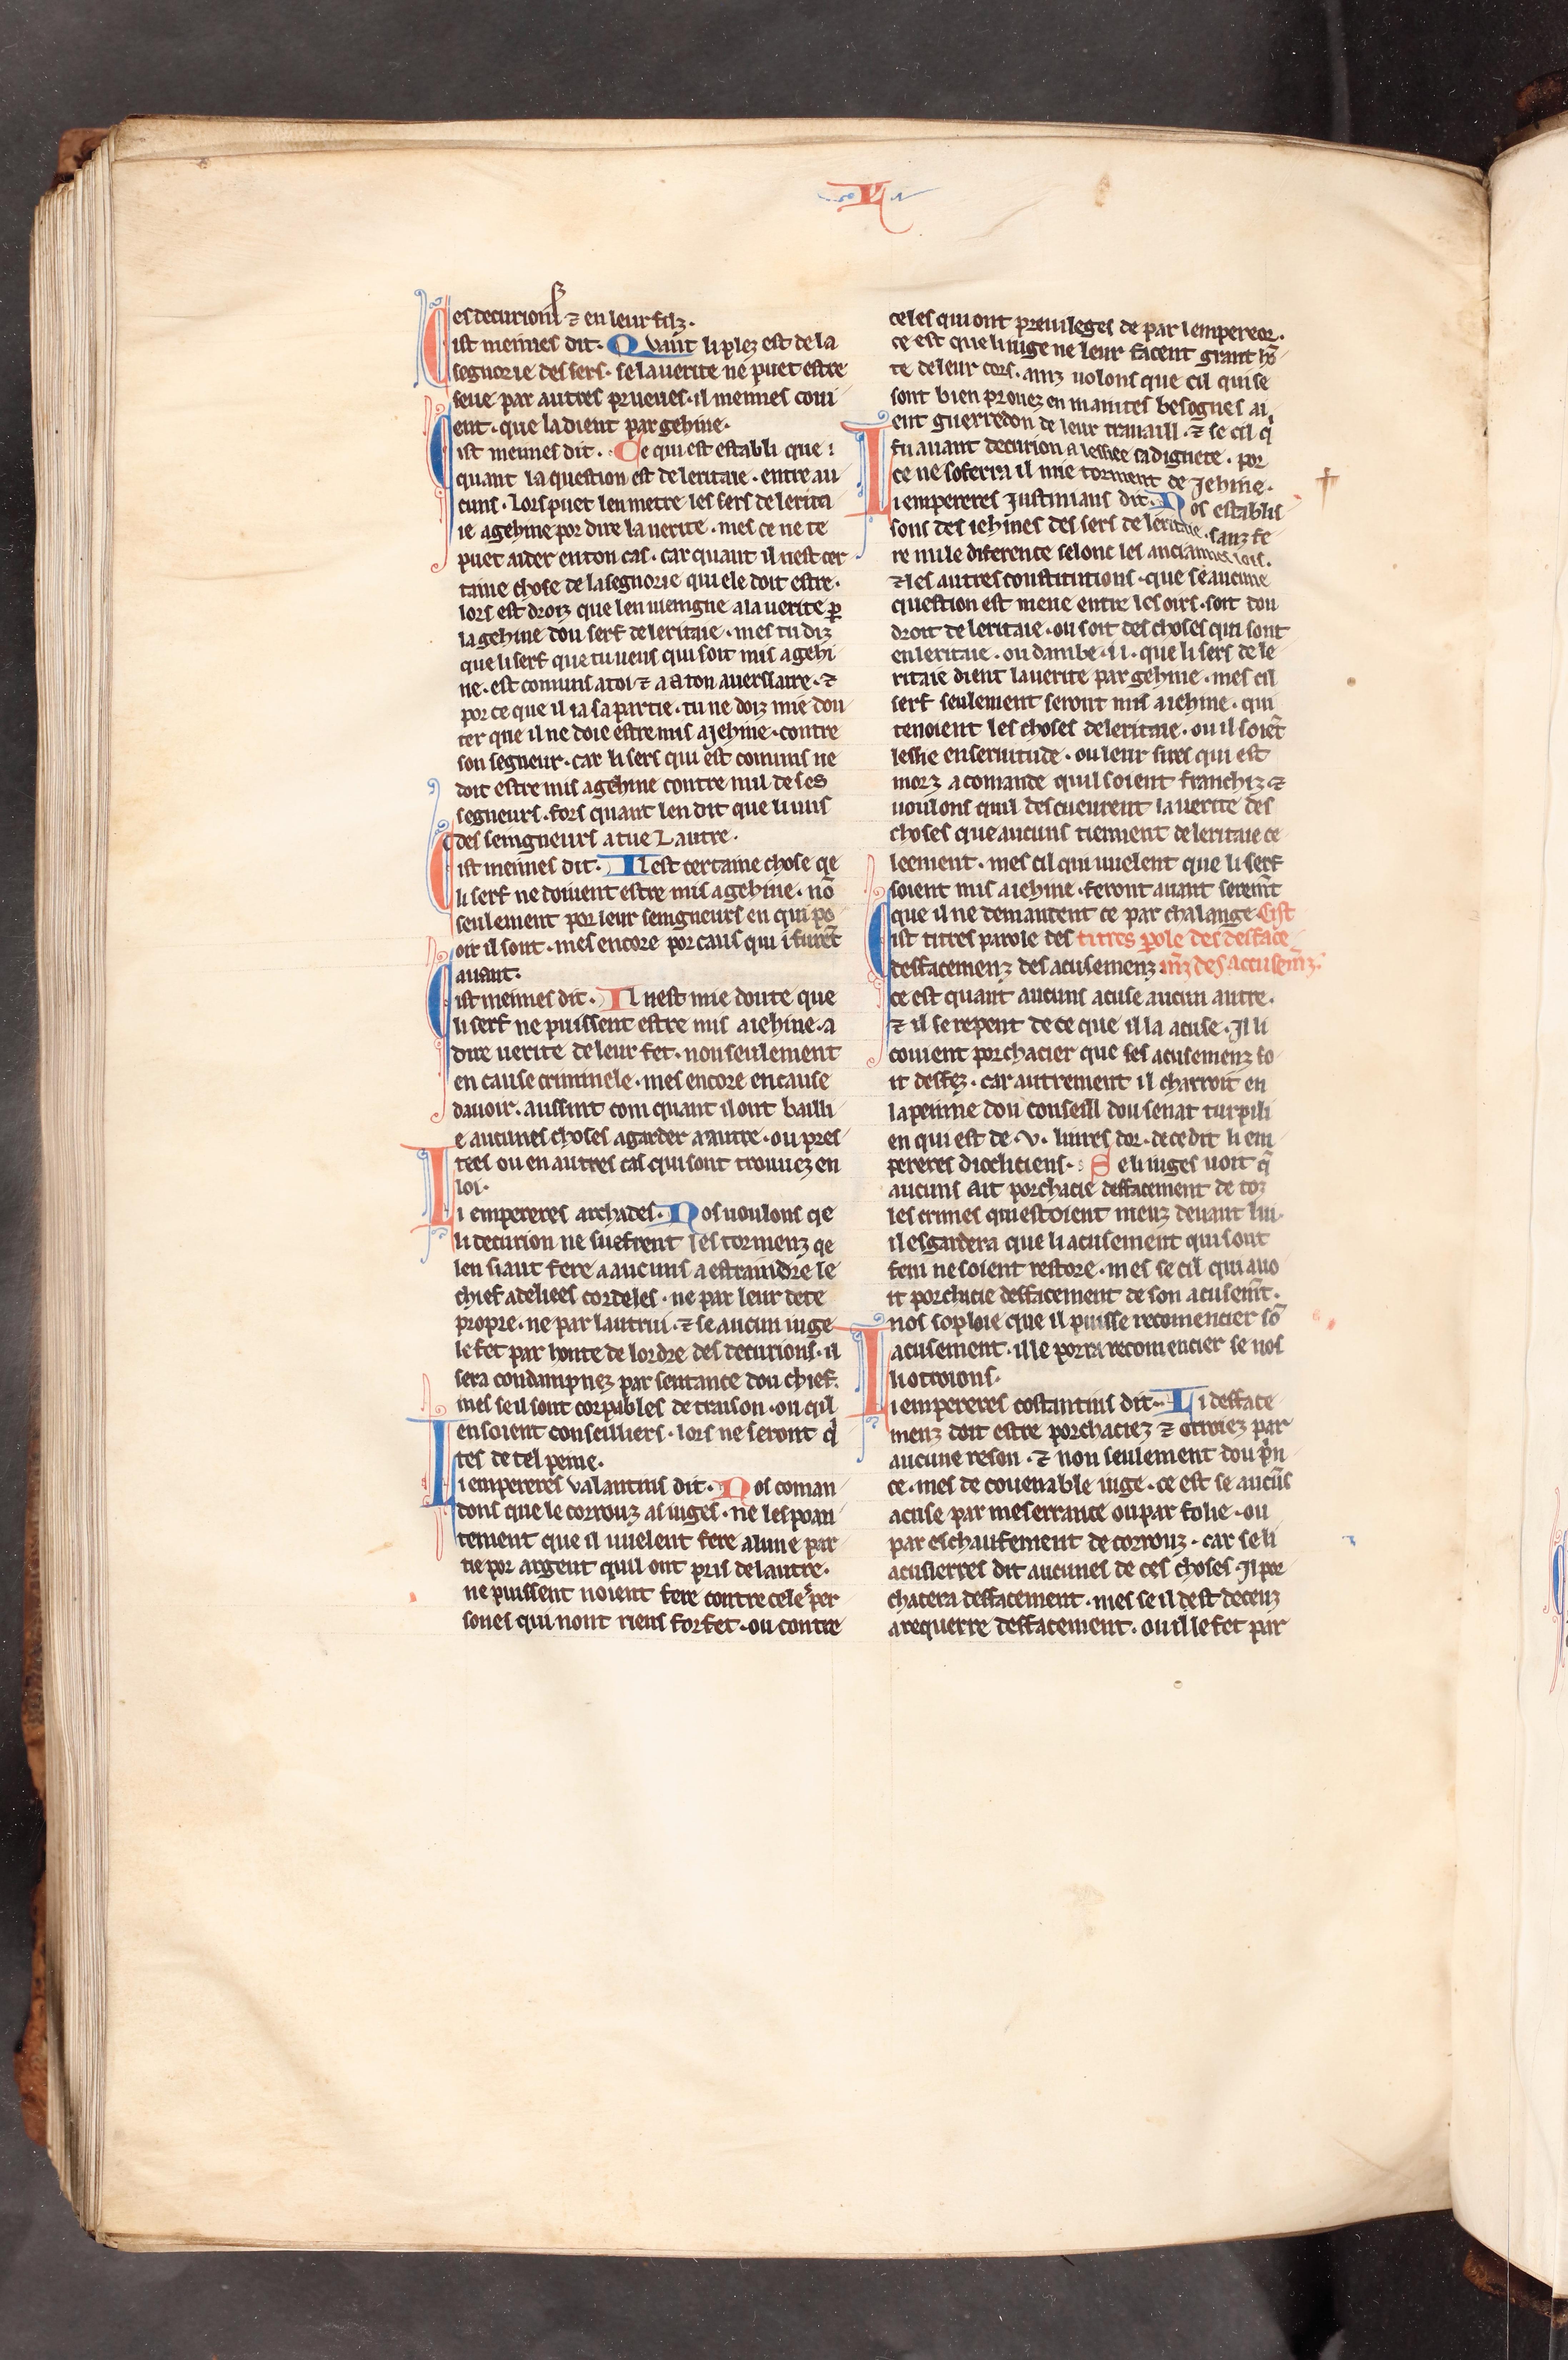 L
es decurions ⁊ en leur filz.
Cist meimes dit. Quant li plez est de la
segnorie des sers. se la uerite ne puet estre
seue par autres prueues. il meimes coui
ent. que la dient par gehine.
Cist meimes dit. Ce qui est establi que i
quant la question est de leritaie. entre au
cuns. Lors puet len metre les sers de lerita
ie a gehine por dire la uerite. mes ce ne te
puet aider en ton cas. car quant il nest cer
taine chose de la segnorie qui ele doit estre.
lors est droiz que len uieingne a la uerite ꝑ
la gehine dou serf de leritaie. mes tu diz
que li serf que tu ueus qui soit mis a gehi
ne. est comuns a toi ⁊ a ton auersaire. ⁊
por ce que il i a sa partie. tu ne doiz mie dou
ter que il ne doie estre mis a jehine. contre
son segneur. car li sers qui est comuns ne
doit estre mis a gehine contre nul de ses
segneurs. fors quant len dit que li uns
des seingneurs a tue Lautre.
Cist meimes dit. Il est certaine chose qe
li serf ne doiuent estre mis a gehine. nō
seulement por leur seingneurs en qui po
oir il sont. mes encore por caus qui i furēt
auant.
Cist meimes dit. Il nest mie doute que
li serf ne puissent estre mis a iehine. a
dire uerite de leur fet. non seulement
en cause criminele. mes encore en cause
dauoir. aussint com quant il ont bailli
e aucunes choses a garder a autre. ou pres
tees ou en autres cas qui sont trouuez en
loi.
Li empereres archades. Nos uoulons qe
li decurion ne sueffrent les tormenz qe
len siaut fere a aucuns a estraindre le
chief a deliees cordeles. ne par leur dete
propre. ne par lautrui. ⁊ se aucun iuge
le fet par honte de lordre des decurions. il
sera condampnez par sentance dou chief.
mes se il sont corpables de traison. ou qil
en soient conseilliers. lors ne seront q̄
tes de tel peine.
Li empereres valantins dit. Nos coman
dons que le corrouz as iuges. ne les poan
tement que il uuelent fere a lune par
tie por argent quil ont pris de lautre.
ne puissent noient fere contre celes per
sones qui nont riens forfet. ou contre
celes qui ont preuileges de par lempereor.
ce est que li iuge ne leur facent grant hō
te de leur cors. ainz uolons que cil qui se
sont bien prouez en maintes besognes ai
ent guerredon de leur trauaill. ⁊ se cil q̄
fu auant decurion a lessiee sa dignete. por
ce ne soferra il mie torment de jehine.
Li empereres Justinians dit. Nos establis
sons des iehines des sers de leritaie. sanz fe
re nule diference selonc les anciannes lois.
⁊ les autres constitutions. que se aucune
question est meue entre les oirs. soit dou
droit de leritaie. ou soit des choses qui sont
en leritaie. ou dambe .ii. que li sers de le
ritaie dient la uerite par gehine. mes cil
serf seulement seront mis a iehine. qui
tenoient les choses de leritaie. ou il soiēt
lessie en seruitude. ou leur sires qui est
morz a comande quil soient franchiz. ⁊
uoulons quil descueurent la uerite des
choses que aucuns tiennent de leritaie ce
leement. mes cil qui uuelent que li serf
soient mis a iehine. feront auant seremēt
que il ne demandent ce par chalange Cist
Cist titres parole des titres ꝑole des desface
desfacemenz des acusemenz mēz des accusemēz.
ce est quant aucuns acuse aucun autre.
⁊ il se repent de ce que il la acuse. Il li
couient porchacier que ses acusemenz so
it desfez. car autrement il charroit en
la peinne dou conseill dou senat turpili
en qui est de .v. liures dor. de ce dit li em
pereres dioclitiens. Se li iuges uoit q̄
aucuns ait porchacie desfacement de toz
les crimes qui estoient meuz deuant lui.
il esgardera que li acusement qui sont
feni ne soient restore. mes se cil qui auo
it porchacie desfacement de son acusemēt.
nos soploie que il puisse recomencier sō
acusement. il le porra recomencier se nos
li otroions.
Li empereres costantins dit. Li desface
menz doit estre porchaciez ⁊ otroiez par
aucune reson. ⁊ non seulement dou p̄n
ce. mes de couenable iuge. ce est se aucūs
acuse par meserrance ou par folie. ou
par eschaufement de corrouz. car se li
acusierres dit aucunes de ces choses. Il por
chacera desfacement. mes se il dest decenz
a requerre desfacement. ou il le fet par